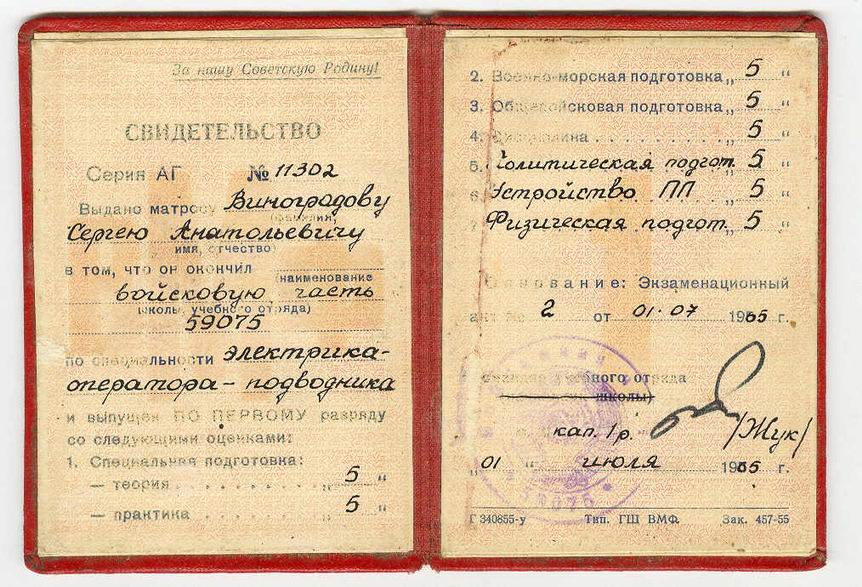 За нашу Советскую Родину!
СВИДЕТЕЛЬСТВО
Серия АГ № 11302
Выдано матросу Виноградову
(фамилия,
Сергею Анатольевичу
имя, отчество)
в том, что он окончил
(наименование
войсковую часть
школы, учебного отряда)
59075
по специальности электрика-
оператора-подводника
и выпущен ПО ПЕРВОМУ разряду
со следующими оценками:
1. Специальная подготовка:
— теория . . . . . . . . „ 5 "
— практика . . . . . . . „ 5 "
2. Военно-морская подготовка „ 5 "
3. Общевойсковая подготовка „ 5 "
4. Дисциплина . . . . . . . „ 5 "
5. Политическая подгот. „ 5 "
6. Устройство ПЛ „ 5 "
7. Физическая подгот. „ 5 "
Основание: Экзаменационный
акт № 2 от 01.07 1965 г.
учебного отряда
школы)
кап. 1 р. /Жук/
„01" июля 1965 г.
59075
Г 340855-у Тип. ГШ ВМФ. Зак. 457-55